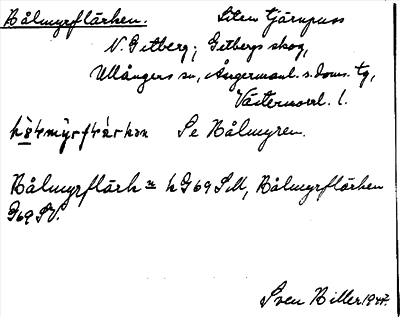 Bålmyrflärken. Liten tjärnpuss
N. Getberg; Getbergs skog,
Ullångers sn, Ångermanl. s. doms. tg,
Västernorrl. l.
Se Bålmyren.
Bålmyrflärk en h G69 SM, Bålmyrflärken
G69 SV.
Sven Biller 1947.